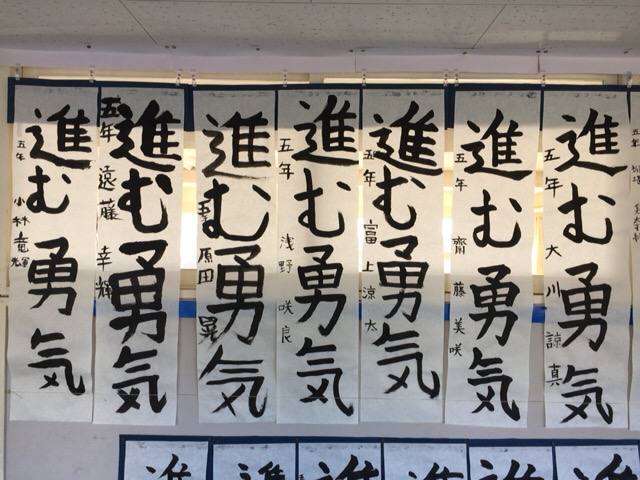 進む勇気
五年 大川諒真
進む勇気
五年 齋藤美咲
進む勇気
五年 富上涼太
進む勇気
五年 浅野咲良
進む勇気
原田
進む勇気
五年 遠藤幸輝
進む勇気
五年 小林竜輝
進
進
進
進
進
進